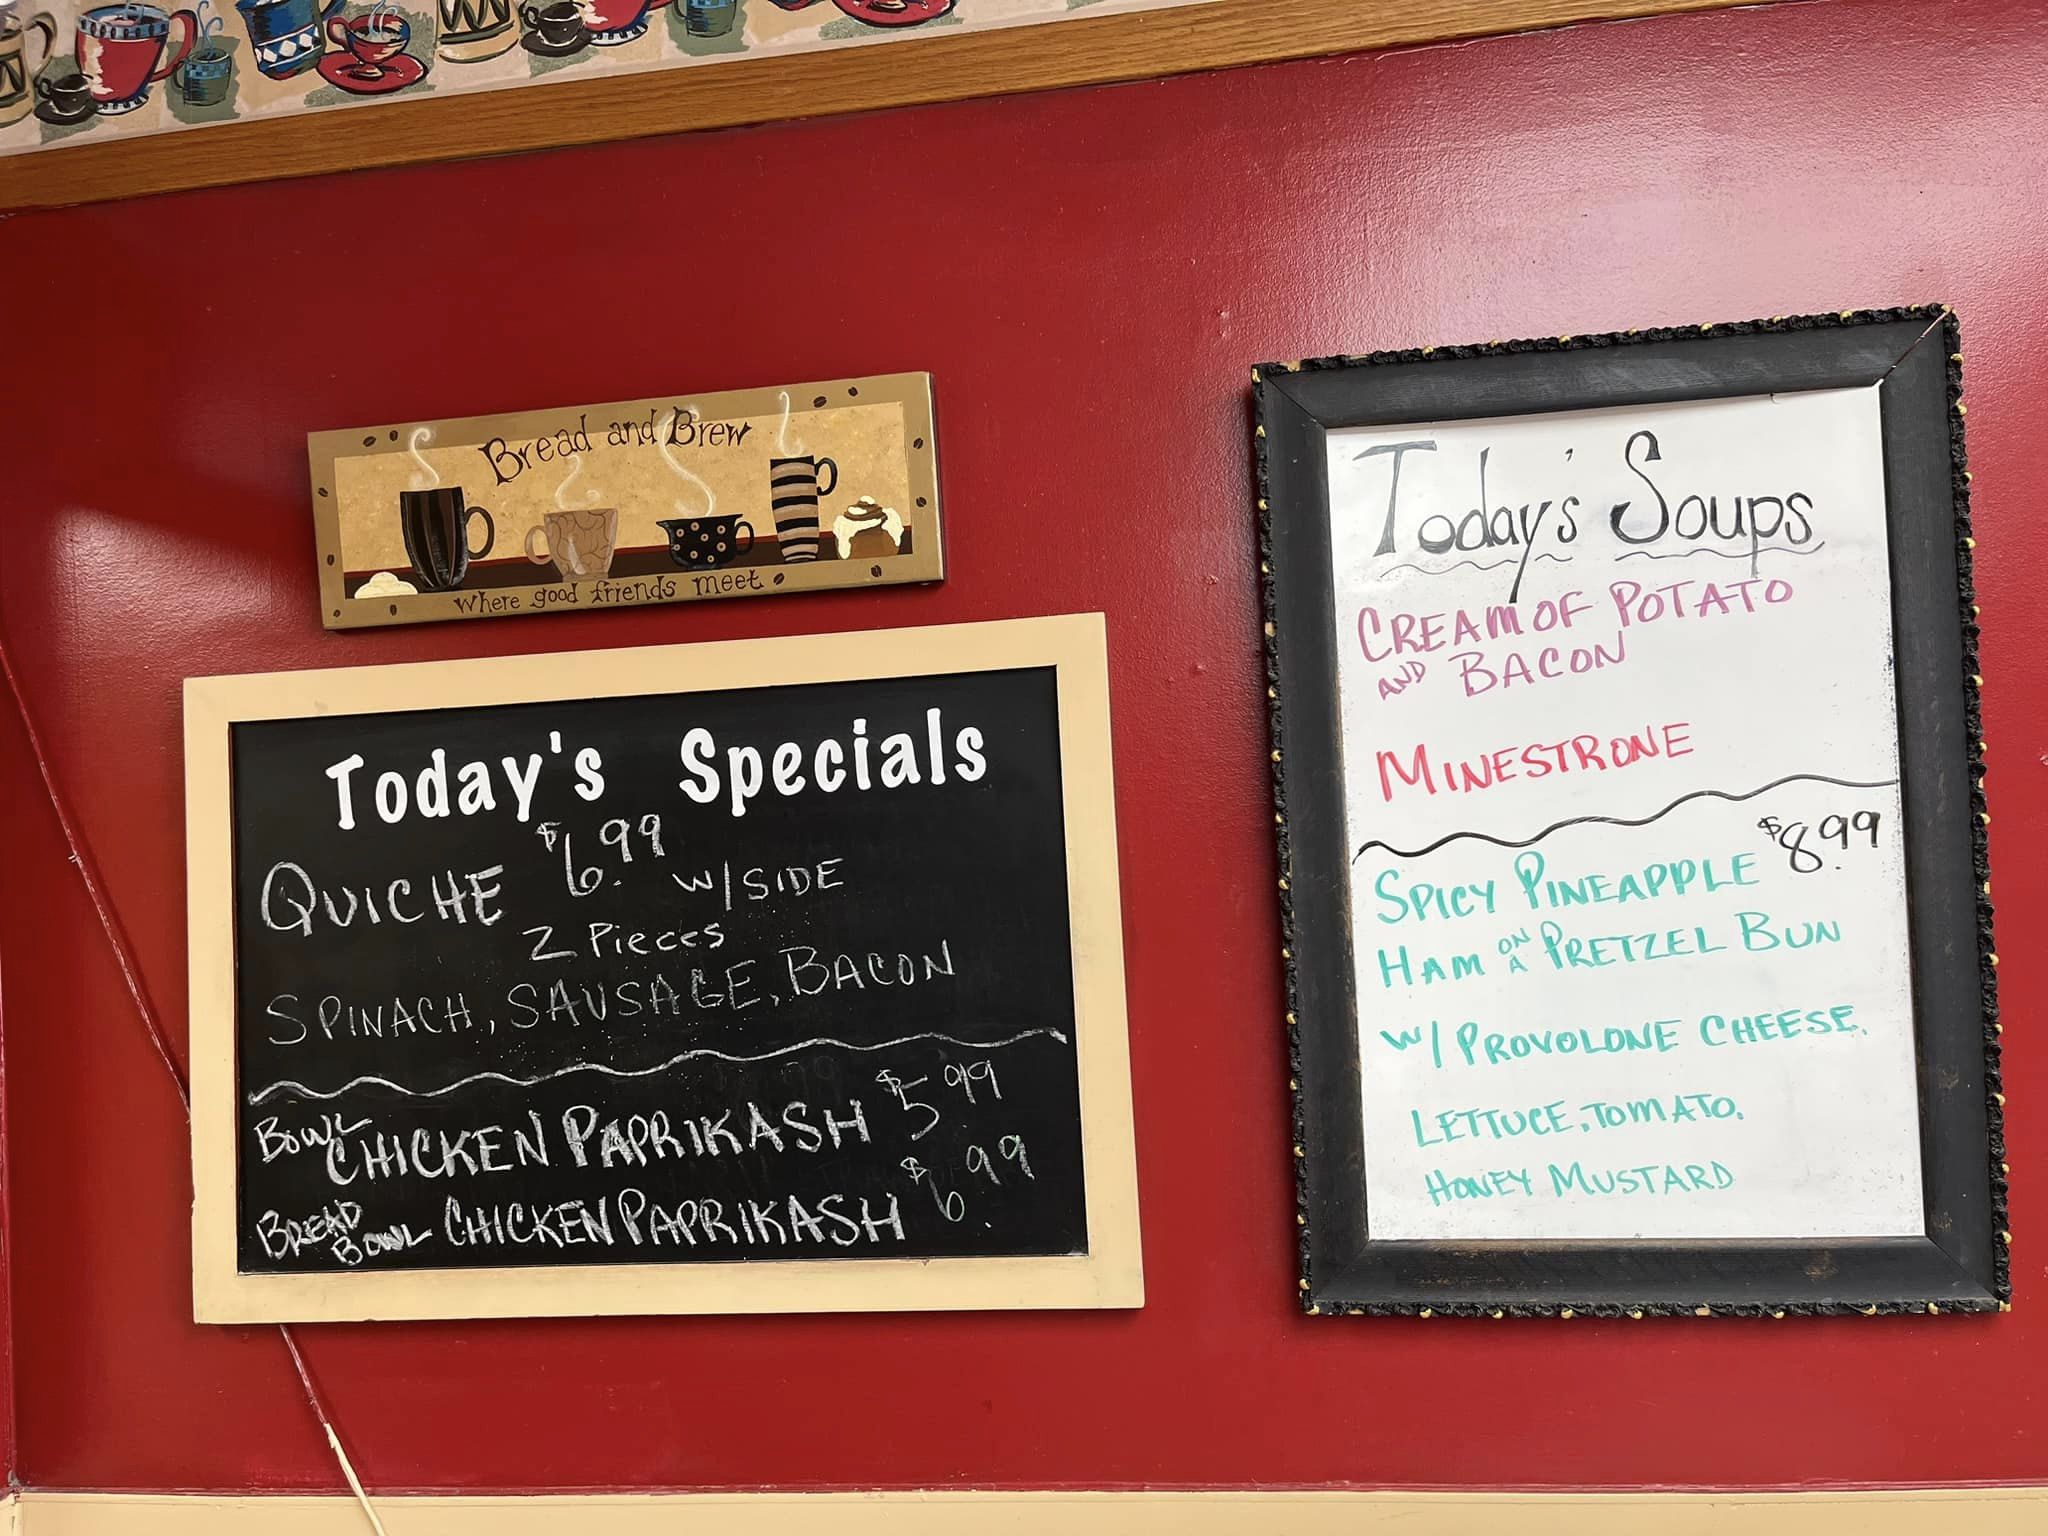 Bread and Brew
where good friends meet
Today's Specials
QUICHE $6.99 W/SIDE
2 Pieces
SPINACH, SAUSAGE, BACON
BOWL CHICKEN PAPRIKASH $5.99
BREAD BOWL CHICKEN PAPRIKASH $6.99
Today's Soups
CREAM OF POTATO
AND BACON
MINESTRONE
$8.99
SPICY PINEAPPLE
HAM ON A PRETZEL BUN
W/ PROVOLONE CHEESE,
LETTUCE, TOMATO,
HONEY MUSTARD